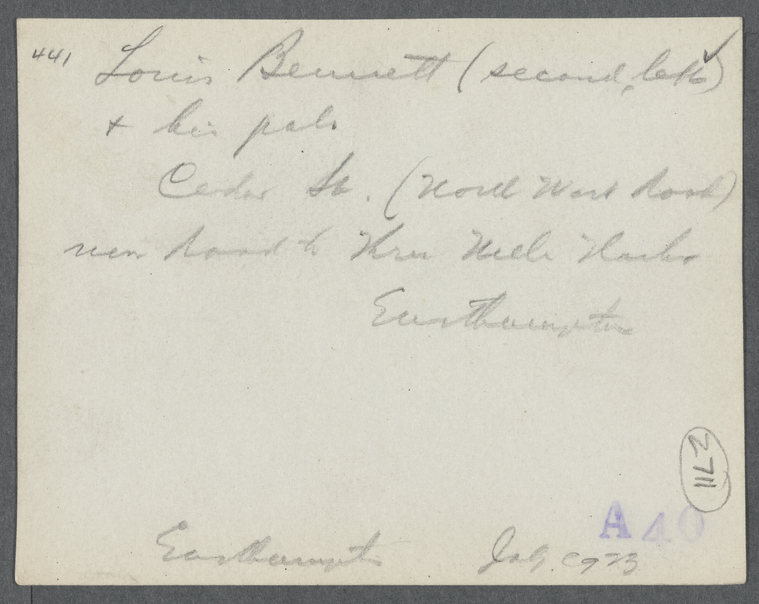 441 Louis Bennett (second, left)
& his pals
Cedar St. (North West Road)
near Road to Three Mile Harbor
Easthampton
2711
A40
Easthampton July 1923